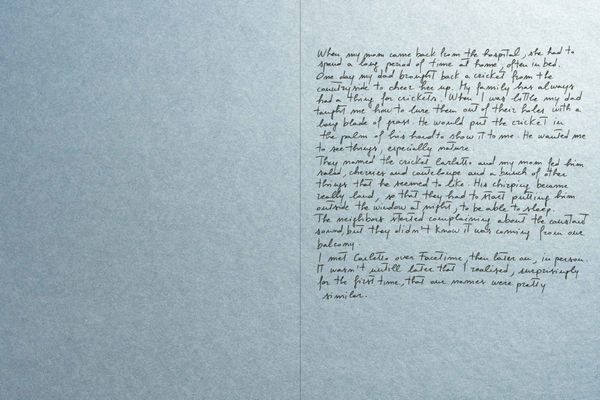 When my mom came back from the hospital, she had to
spend a long period of time at home, often in bed.
One day my dad brought back a cricket from the
countryside to cheer her up. My family has always
had a thing for crickets. When I was little my dad
taught me how to lure them out of their holes with a
long blade of grass. He would put the cricket in
the palm of his hand to show it to me. He wanted me
to see things, especially nature.
They named the cricket Carletto and my mom fed him
salad, cherries and cantaloupe and a bunch of other
things that he seemed to like. His chirping became
really loud, so that they had to start putting him
outside the window at night, to be able to sleep.
The neighbors started complaining about the constant
sound, but they didn't know it was coming from our
balcony.
I met Carletto over Facetime, then later on, in person.
It wasn't untill later that I realised, surprisingly
for the first time, that our names were pretty
similar.